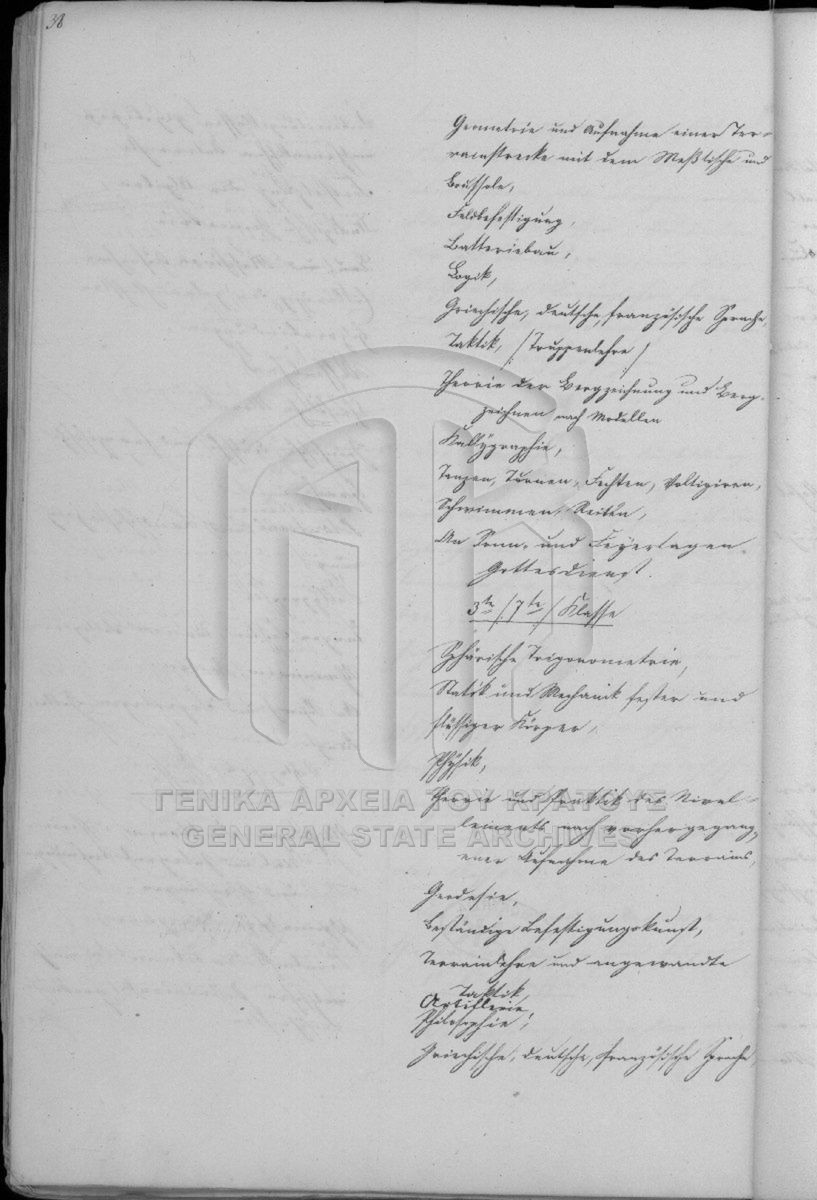 38
Geometrie und Aufnahme einer Ter-
rainstrecke mit dem Meßtische und
Boussole,
Feldbefestigung,
Batteriebau,
Logik,
Griechische, deutsche, französische Sprache,
Taktik, /Truppenlehre/
Theorie der Bergzeichnung und Berg-
zeichnen nach Modellen
Kallygraphie,
Tanzen, Turnen, Fechten, Voltigiren,
Schwimmen, Reiten,
An Sonn- und Feyertagen
Gottesdienst.
3te /7te/ Klasse
Sphärische Trigonometrie,
Statik und Mechanik fester und
flüssiger Körper,
Physik,
Theorie und Praktik des Nivel-
lements nach vorhergegang-
ener Aufnahme des Terrains,
Geodesie,
Beständige Befestigungskunst,
Terrainlehre und angewandte
Taktik,
Artillerie
Philosophie,
Griechische, deutsche, französische Sprache,
ΓΕΝΙΚΑ ΑΡΧΕΙΑ ΤΟΥ ΚΡΑΤΟΥΣ
GENERAL STATE ARCHIVES